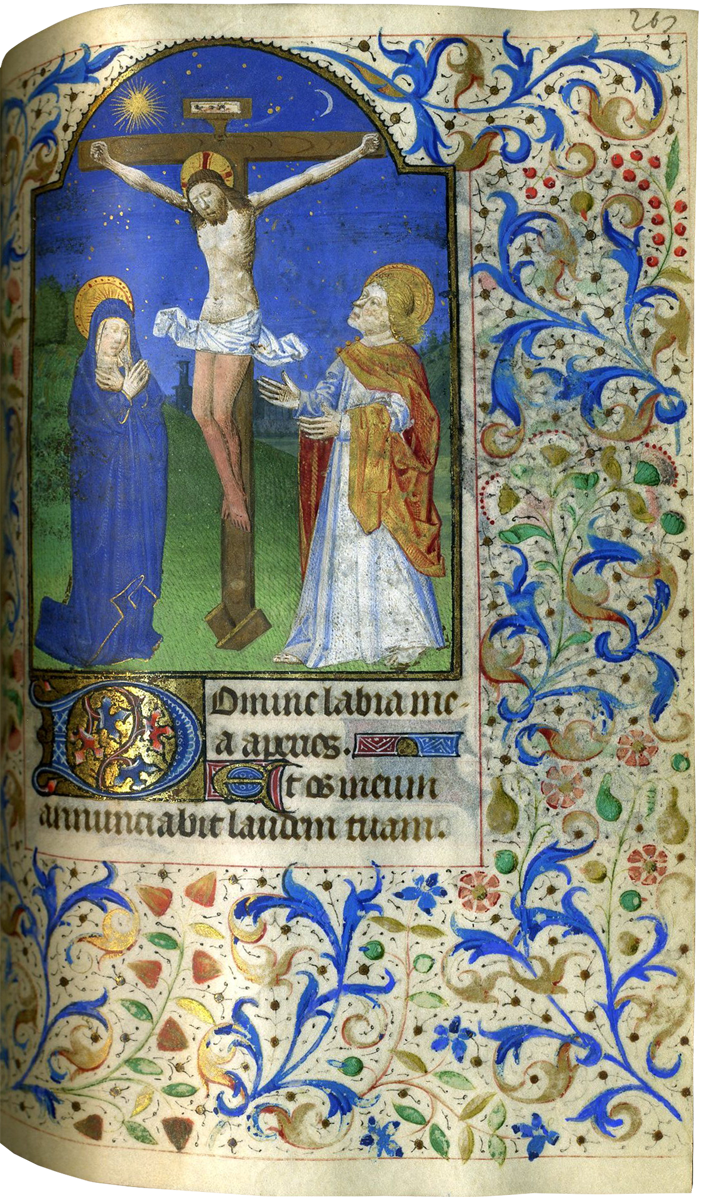 Domine labia me-
a aperies.
Et os meum
annunciabit laudem tuam.